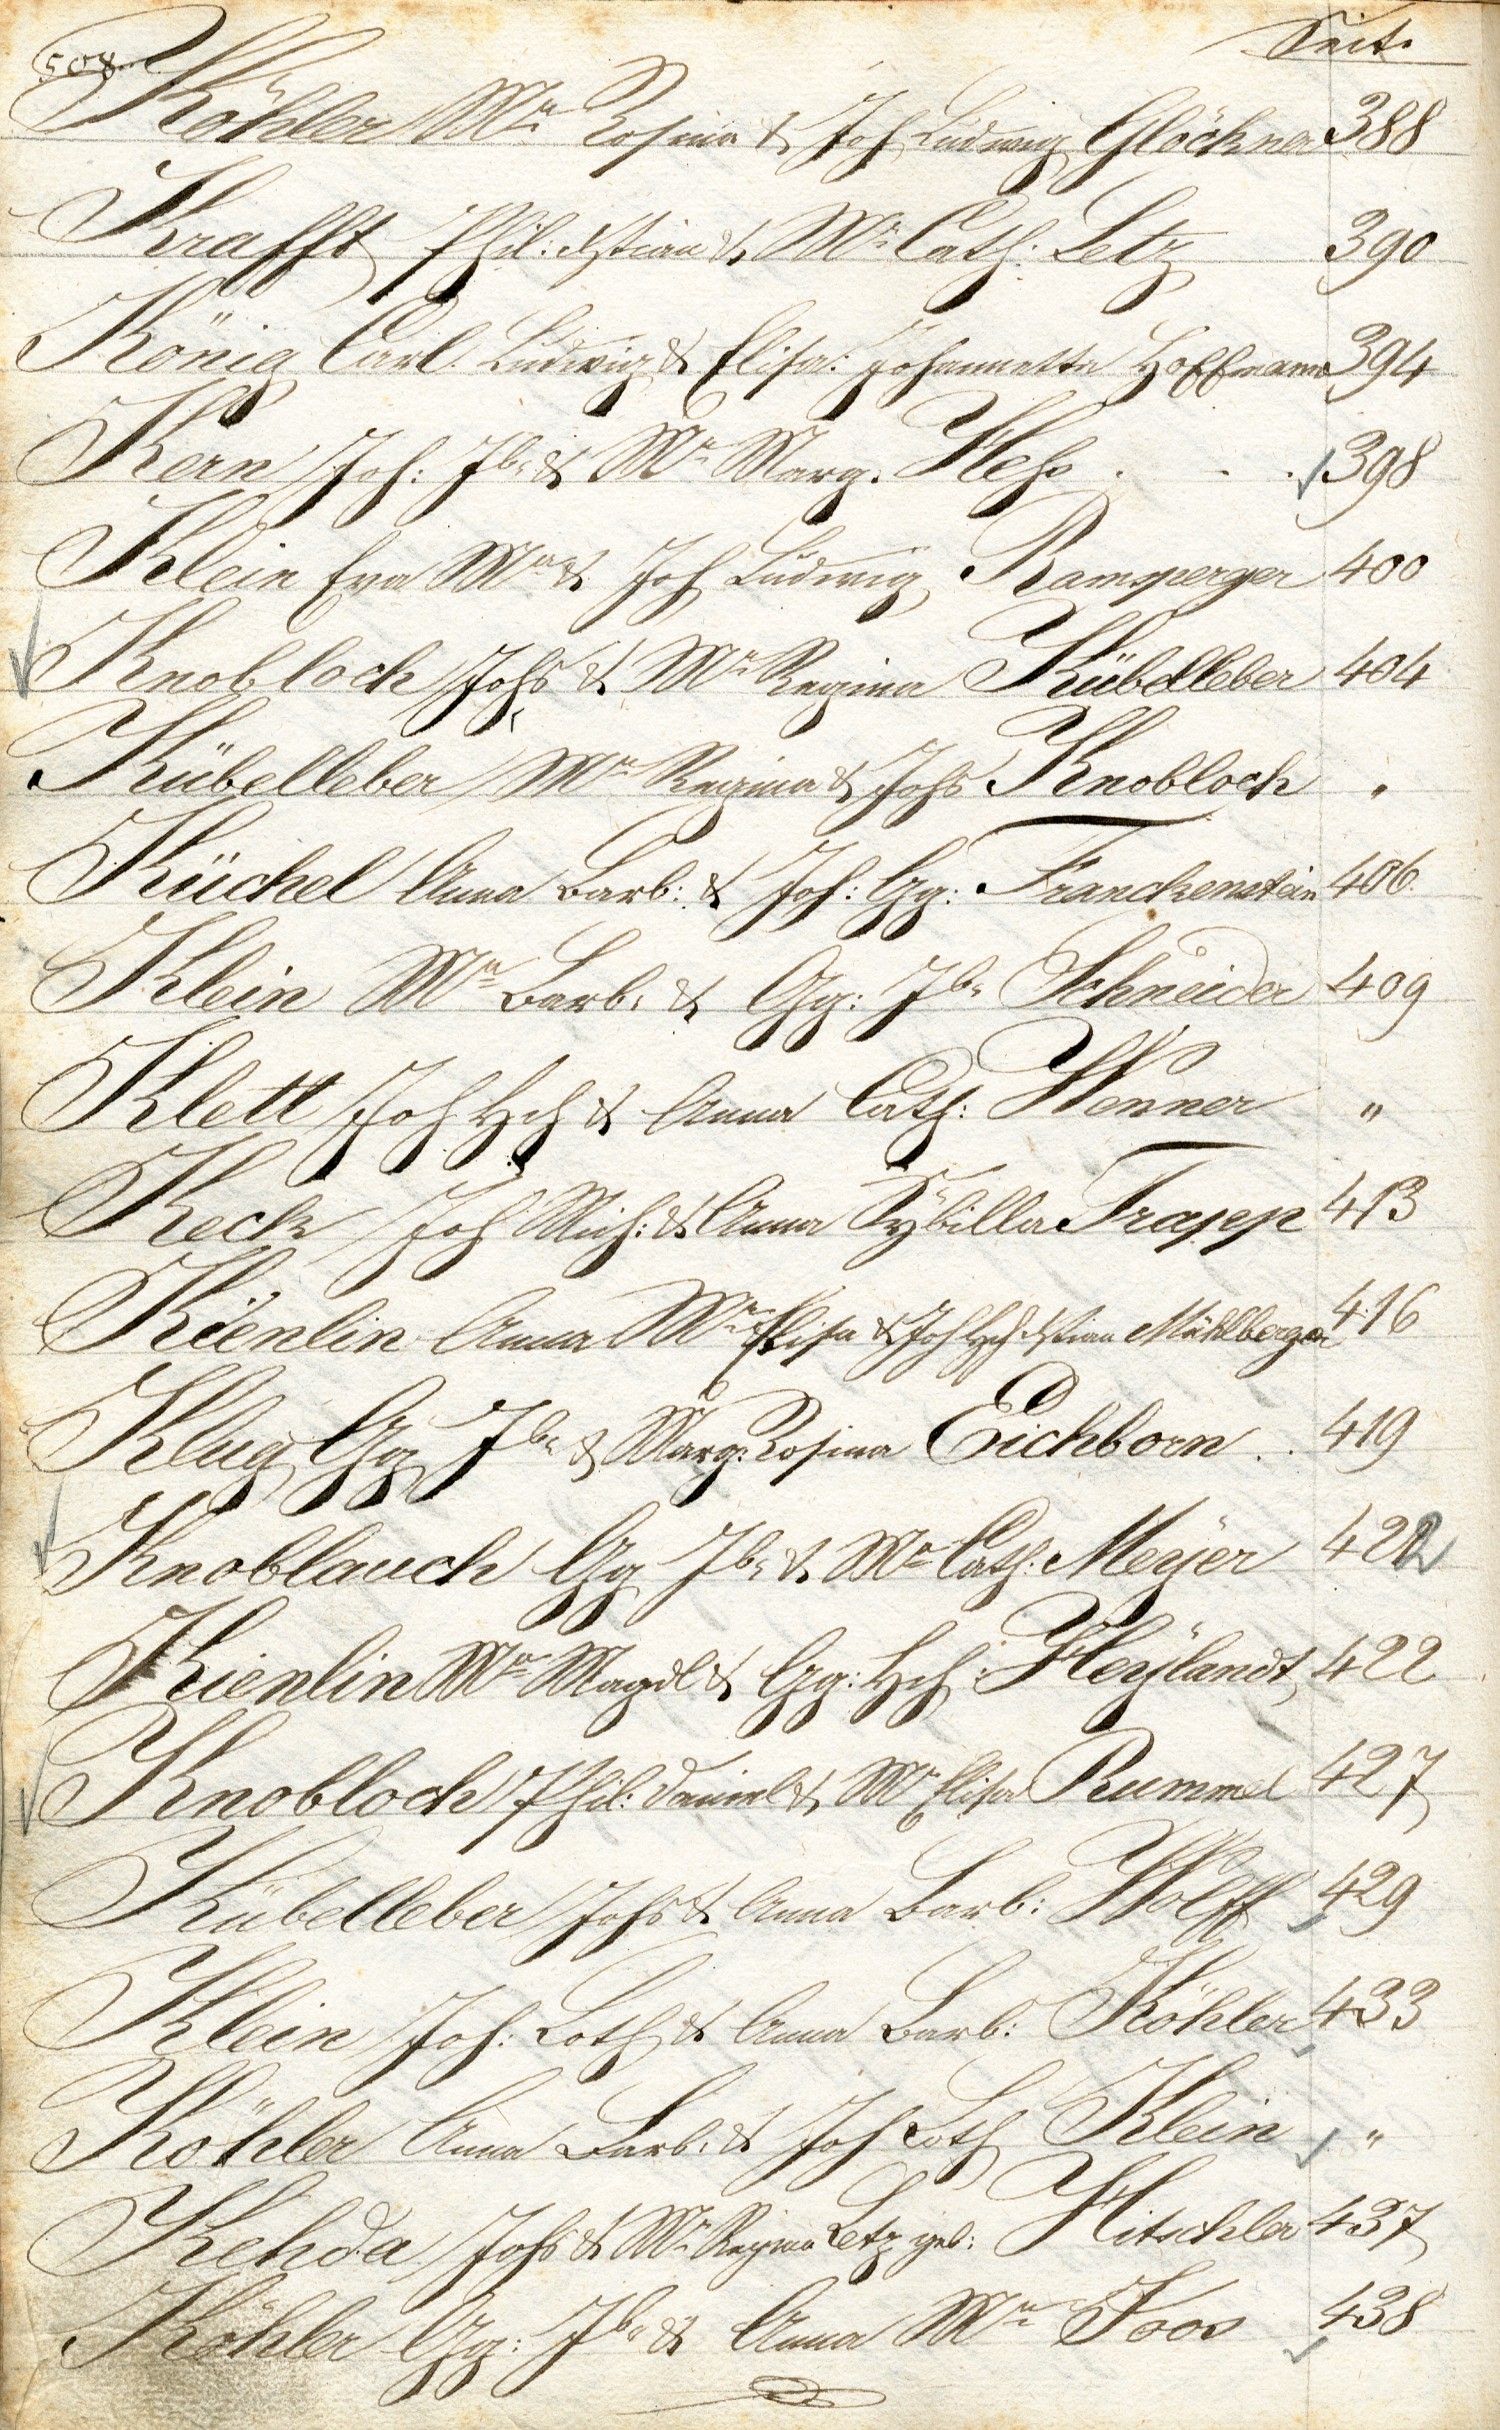 508. Seite
Köhler Ma Rosina & Joh Ludwig Glöckner 388
Krafft Phil: Xstian & Ma Cath: Letz 390
König Carl Ludwig & Elisa: Johannetta Hoffmann 394
Kern Joh: Jb. & Ma Marg. Hess . . . 398
Klein Eva Ma & Joh Ludwig Ramsperger 400
Knobloch Johs & Ma Regina Kübelleber 404
Kübelleber Ma Regina & Johs Knobloch "
Küchel Anna Barb: & Joh: Gg: Franckenstein 406
Klein Ma Barb. & Gg: Jb. Schneider 409
Klett Joh Hch & Anna Cath: Wenner "
Keck Joh Mich: & Anna Sÿbilla Trapp 413
Kienlin Anna Ma Elisa & Joh Hch Xstian Mühlberger 416
Klug Gg Jb. & Marg: Rosina Eichborn . 419
Knoblauch Gg Jb. & Ma Cath: Meÿer 422
Kienlin Ma Magdl & Gg: Hch: Heÿlandt 422
Knobloch Phil: Daniel & Ma Elisa Rummel 427
Kübelleber Johs & Anna Barb: Wolff 429
Klein Joh: Loth & Anna Barb: Köhler 433
Köhler Anna Barb. & Joh Loth Klein "
Kehda Johs & Ma Regina Letz geb: Hitschler 437
Köhler Gg: Jb. & Anna Ma Foos 438